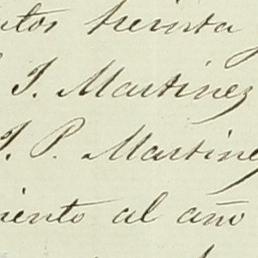 utos treinta y
J. Martinez
J. P. Martine
iento al año